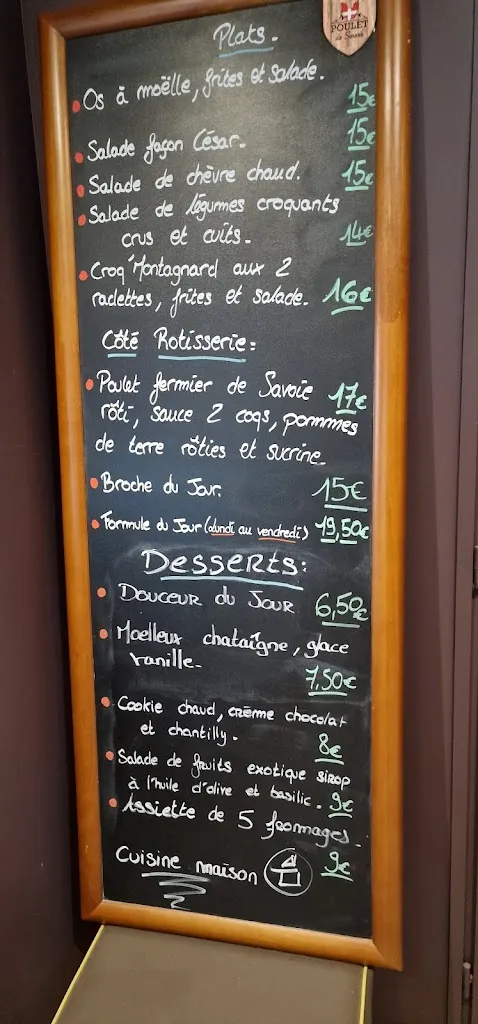 POULET
de Savoie
Plats.
Os à moëlle, frites et salade.
15€
Salade façon César.
15€
Salade de chèvre chaud.
15€
Salade de légumes croquants
crus et cuits.
14€
Croq'Montagnard aux 2
raclettes, frites et salade. 16€
Côté Rotisserie:
Poulet fermier de Savoie 17€
rôti, sauce 2 coqs, pommmes
de terre rôties et sucrine
Broche du Jour. 15€
Formule du Jour (lundi au vendredi) 19,50€
DESSERTS:
DOUCEUR DU JOUR 6,50€
Moelleux chataîgne, glace
vanille.
7,50€
Cookie chaud, crème chocolat
et chantilly.
8€
Salade de fruits exotique sirop
à l'huile d'olive et basilic. 9€
Assiette de 5 fromages.
9€
Cuisine maison